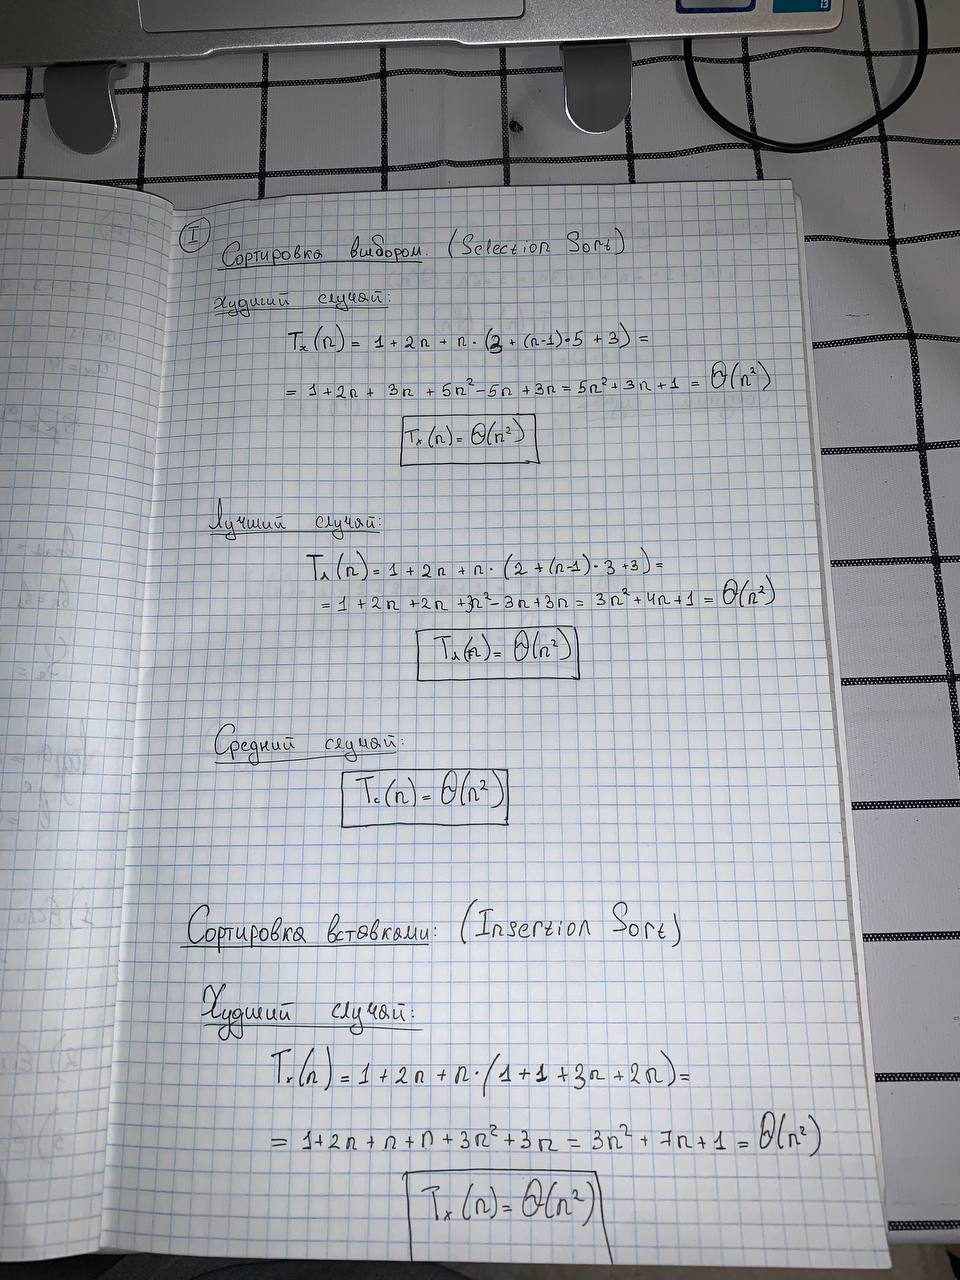 I
Сортировка выбором. (Selection Sort)
Худший случай:
Tх(n) = 1 + 2n + n · (3 + (n-1)·5 + 3) =
= 1 + 2n + 3n + 5n² - 5n + 3n = 5n² + 3n + 1 = Θ(n²)
Tх(n) = Θ(n²)
Лучший случай:
Tл(n) = 1 + 2n + n · (2 + (n-1)·3 + 3) =
= 1 + 2n + 2n + 3n² - 3n + 3n = 3n² + 4n + 1 = Θ(n²)
Tл(n) = Θ(n²)
Средний случай:
Tс(n) = Θ(n²)
Сортировка вставками: (Insertion Sort)
Худший случай:
Tх(n) = 1 + 2n + n · (1 + 1 + 3n + 2n) =
= 1 + 2n + n + n + 3n² + 3n = 3n² + 7n + 1 = Θ(n²)
Tх(n) = Θ(n²)